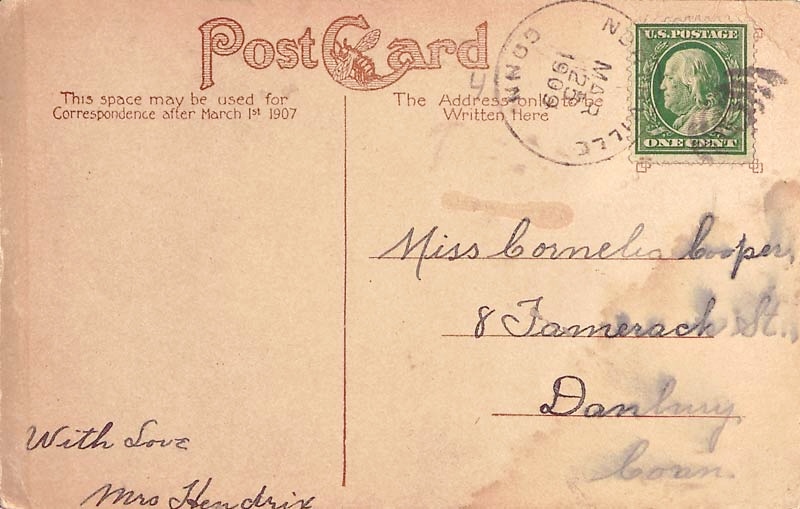 Post Card
This space may be used for
Correspondence after March 1st 1907
The Address only to be
Written Here
CONN
MAR
25
1909
VILLE
U.S. POSTAGE
ONE CENT
4
Miss Cornelia Cooper,
8 Tamerack St.,
Danbury
Conn.
With Love
Mrs Hendrix